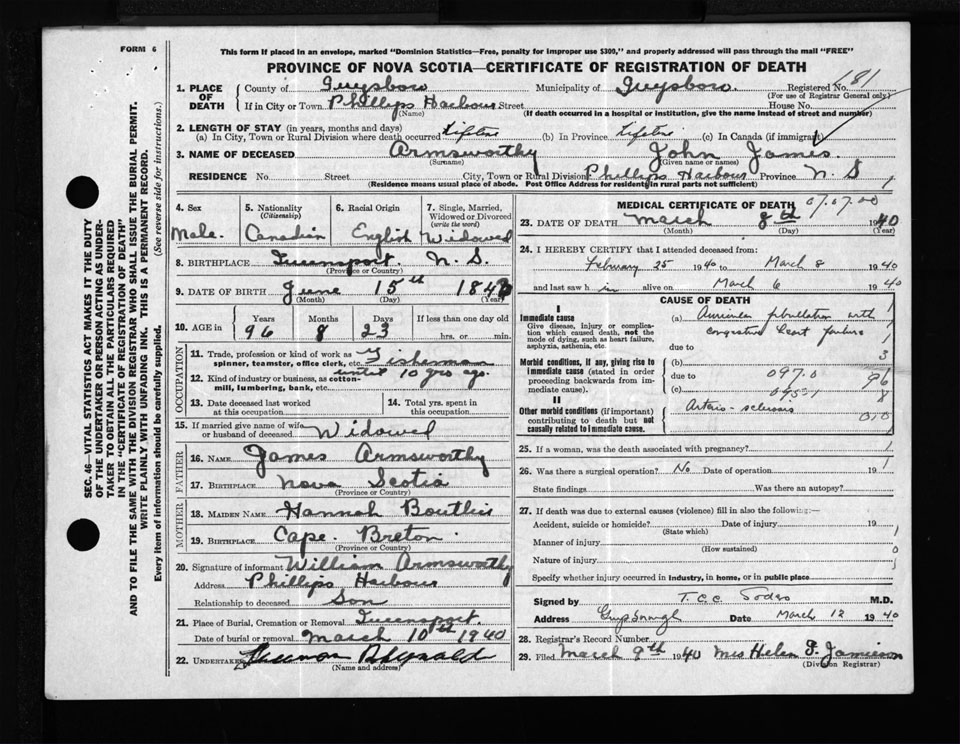 FORM 6
This form if placed in an envelope, marked "Dominion Statistics—Free, penalty for improper use $300," and properly addressed will pass through the mail "FREE"
PROVINCE OF NOVA SCOTIA—CERTIFICATE OF REGISTRATION OF DEATH
SEC. 46—VITAL STATISTICS ACT MAKES IT THE DUTY
OF THE UNDERTAKER OR PERSON ACTING AS UNDER-
TAKER TO OBTAIN ALL THE PARTICULARS REQUIRED
IN THE "CERTIFICATE OF REGISTRATION OF DEATH"
AND TO FILE THE SAME WITH THE DIVISION REGISTRAR WHO SHALL ISSUE THE BURIAL PERMIT.
WRITE PLAINLY WITH UNFADING INK. THIS IS A PERMANENT RECORD.
Every item of information should be carefully supplied. (See reverse side for instructions.)
1. PLACE OF DEATH County of Guysboro Municipality of Guysboro. Registered No. 681
(For use of Registrar General only.)
If in City or Town Phillips Harbour Street House No.
(Name) (If death occurred in a hospital or institution, give the name instead of street and number)
2. LENGTH OF STAY (in years, months and days)
(a) In City, Town or Rural Division where death occurred lifetime (b) In Province lifetime (c) In Canada (if immigrant)
3. NAME OF DECEASED Armsworthy John James.
(Surname) (Given name or names)
RESIDENCE No. Street City, Town or Rural Division Phillips Harbour Province N. S
(Residence means usual place of abode. Post Office Address for residents in rural parts not sufficient)
4. Sex 5. Nationality (Citizenship) 6. Racial Origin 7. Single, Married, Widowed or Divorced (write the word)
Male. Canadian English Widowed
8. BIRTHPLACE Queensport N. S.
(Province or Country)
9. DATE OF BIRTH June 15th 184
(Month) (Day) (Year)
10. AGE in Years Months Days If less than one day old
96 8 23 hrs. or min.
OCCUPATION
11. Trade, profession or kind of work as spinner, teamster, office clerk, etc. Fisherman
until 10 yrs ago.
12. Kind of industry or business, as cotton-mill, lumbering, bank, etc.
13. Date deceased last worked at this occupation 14. Total yrs. spent in this occupation
15. If married give name of wife or husband of deceased Widowed
FATHER
16. NAME James Armsworthy
17. BIRTHPLACE Nova Scotia
(Province or Country)
MOTHER
18. MAIDEN NAME Hannah
19. BIRTHPLACE Cape Breton
(Province or Country)
20. Signature of informant William Armsworthy
Address Phillips Harbour
Relationship to deceased Son
21. Place of Burial, Cremation or Removal Queensport.
Date of burial or removal March 10th 1940
22. UNDERTAKER
(Name and address)
MEDICAL CERTIFICATE OF DEATH 07.07.00
23. DATE OF DEATH March 8th 1940
(Month) (Day) (Year)
24. I HEREBY CERTIFY that I attended deceased from:
February 25 1940 to March 8 1940
and last saw h im alive on March 6 1940
CAUSE OF DEATH
I
Immediate cause (a) Auricular fibrillation with
congestive heart failure
Give disease, injury or complication which caused death, not the mode of dying, such as heart failure, asphyxia, asthenia, etc. due to
Morbid conditions, if any, giving rise to immediate cause (stated in order proceeding backwards from immediate cause). (b)
due to 097.0
(c) 095
II
Other morbid conditions (if important) contributing to death but not causally related to immediate cause. Arterio-sclerosis
1
3
96
8
0.0
25. If a woman, was the death associated with pregnancy? 1
26. Was there a surgical operation? No Date of operation 19
State findings Was there an autopsy?
27. If death was due to external causes (violence) fill in also the following:—
Accident, suicide or homicide? Date of injury 19
(State which)
Manner of injury
(How sustained)
Nature of injury
Specify whether injury occurred in industry, in home, or in public place
Signed by M.D.
Address Guysborough Date March 12 1940
28. Registrar's Record Number
29. Filed March 9th 1940 Mrs Helen F. Jamieson
(Division Registrar)